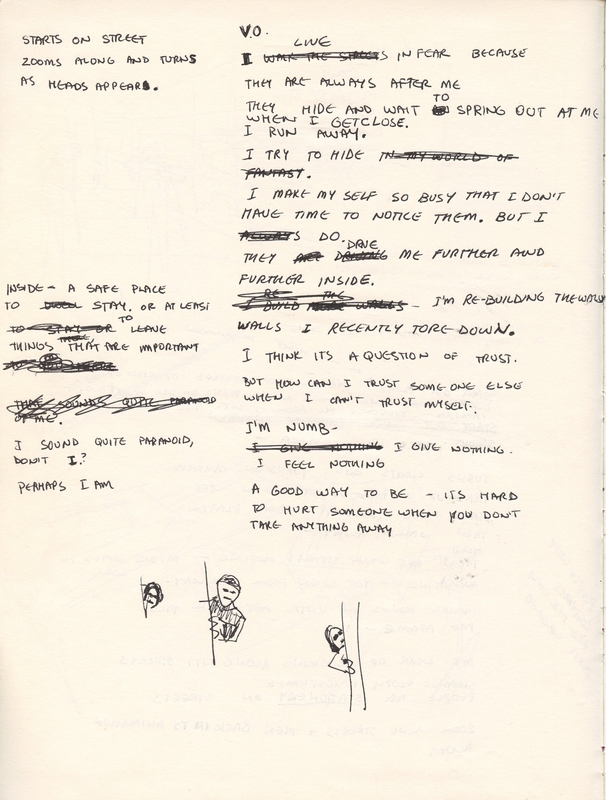 STARTS ON STREET
ZOOMS ALONG AND TURNS
AS HEADS APPEAR.
V.O.
LIVE
I WALK THE STREETS IN FEAR BECAUSE
THEY ARE ALWAYS AFTER ME
TO
THEY HIDE AND WAIT SPRING OUT AT ME
WHEN I GET CLOSE.
I RUN AWAY.
I TRY TO HIDE IN MY WORLD OF
FANTASY.
I MAKE MY SELF SO BUSY THAT I DON'T
HAVE TIME TO NOTICE THEM. BUT I
ALWAYS DO.
DRIVE
THEY ARE DRIVING ME FURTHER AND
FURTHER INSIDE.
RE THE
I BUILD WALLS - I'M RE-BUILDING THE WALLS
WALLS I RECENTLY TORE DOWN.
I THINK ITS A QUESTION OF TRUST.
BUT HOW CAN I TRUST SOMEONE ELSE
WHEN I CAN'T TRUST MYSELF.
I'M NUMB-
I GIVE NOTHING I GIVE NOTHING.
I FEEL NOTHING
A GOOD WAY TO BE - ITS HARD
TO HURT SOMEONE WHEN YOU DON'T
TAKE ANYTHING AWAY
INSIDE - A SAFE PLACE
TO STAY. OR AT LEAST
TO STAY OR LEAVE
TO
THINGS THAT ARE IMPORTANT
THAT SOUNDS QUITE PARANOID
OF ME.
I SOUND QUITE PARANOID,
DON'T I?
PERHAPS I AM